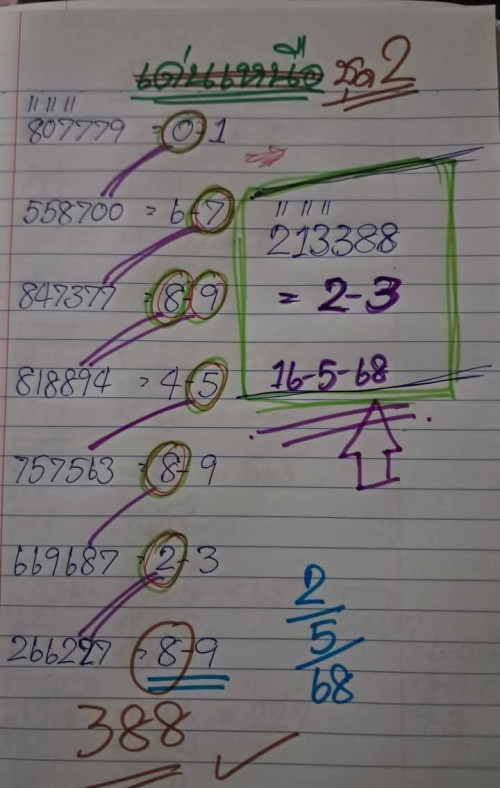 เด่นเหนือ ชุด 2
807779 = 0-1
558700 = 6-7
847377 = 8-9
818894 = 4-5
757563 = 8-9
669687 = 2-3
266227 = 8-9
388
213388
= 2-3
16-5-68
2/5/68